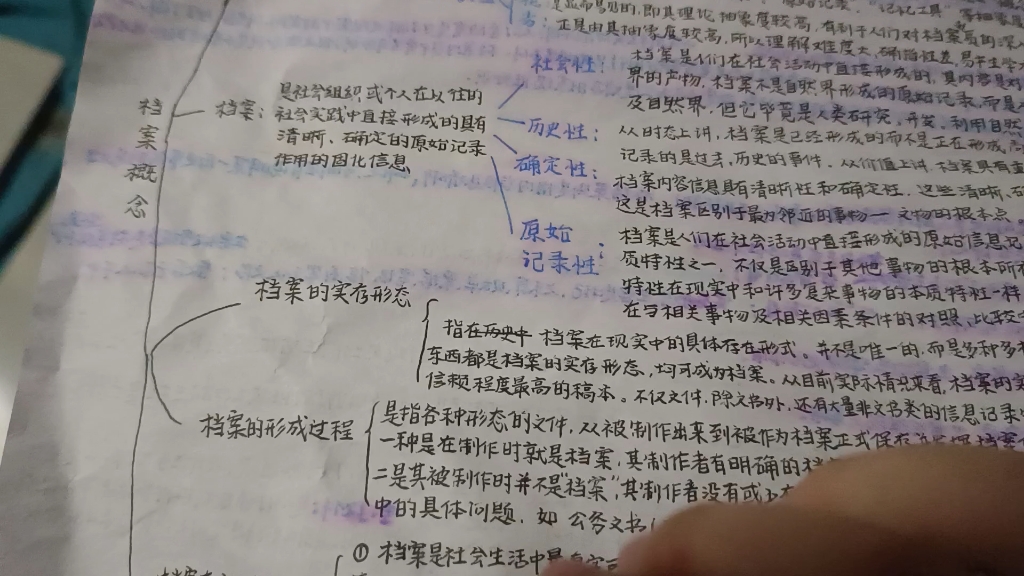 正是由其抽象度较高，所以理解难度大，确指性差，易产生
社会性：档案是人们在社会活动中直接形成的，其内容是对
界的产物，档案不是自然界形成的原始记录，而是
及自然界，但它毕竟是人类研究、开发、利用自然
历史性：从时态上讲，档案是已经形成的而不是正在形成
记录的是过去、历史的事件，从价值上讲，档案具有
确定性：档案内容信息具有清晰性和确定性，这些清晰、
这是档案区别于最为邻近的事物一文物的根本点。
原始
记录性：
档案是人们在社会活动中直接形成的原始信息记
质特性之一，不仅是区别于其他事物的根本所
特性在现实中和许多复杂事物的本质特性一样
在与相关事物及相关因素条件的对照、比较
档案概念
档案：是社会组织或个人在以往的
社会实践中直接形成的具有
清晰、确定的原始记录
作用的固化信息
档案的实存形态
指在历史中 档案在现实中的具体存在形式。并不是唯一的，而是多种多
东西都是档案的实存形态，均可成为档案。从目前实际情况来看，档案的
信赖程度最高的稿本。不仅文件，除文书外，还有大量非文书类的信息记录
档案的形成过程
是指各种形态的文件，从被制作出来到被作为档案正式保存
一种是在制作时就是档案，其制作者有明确的
二是其被制作时并不是"档案"，其制作者没有或
中的具体问题，如 公务文书
① 档案是社会生活中最